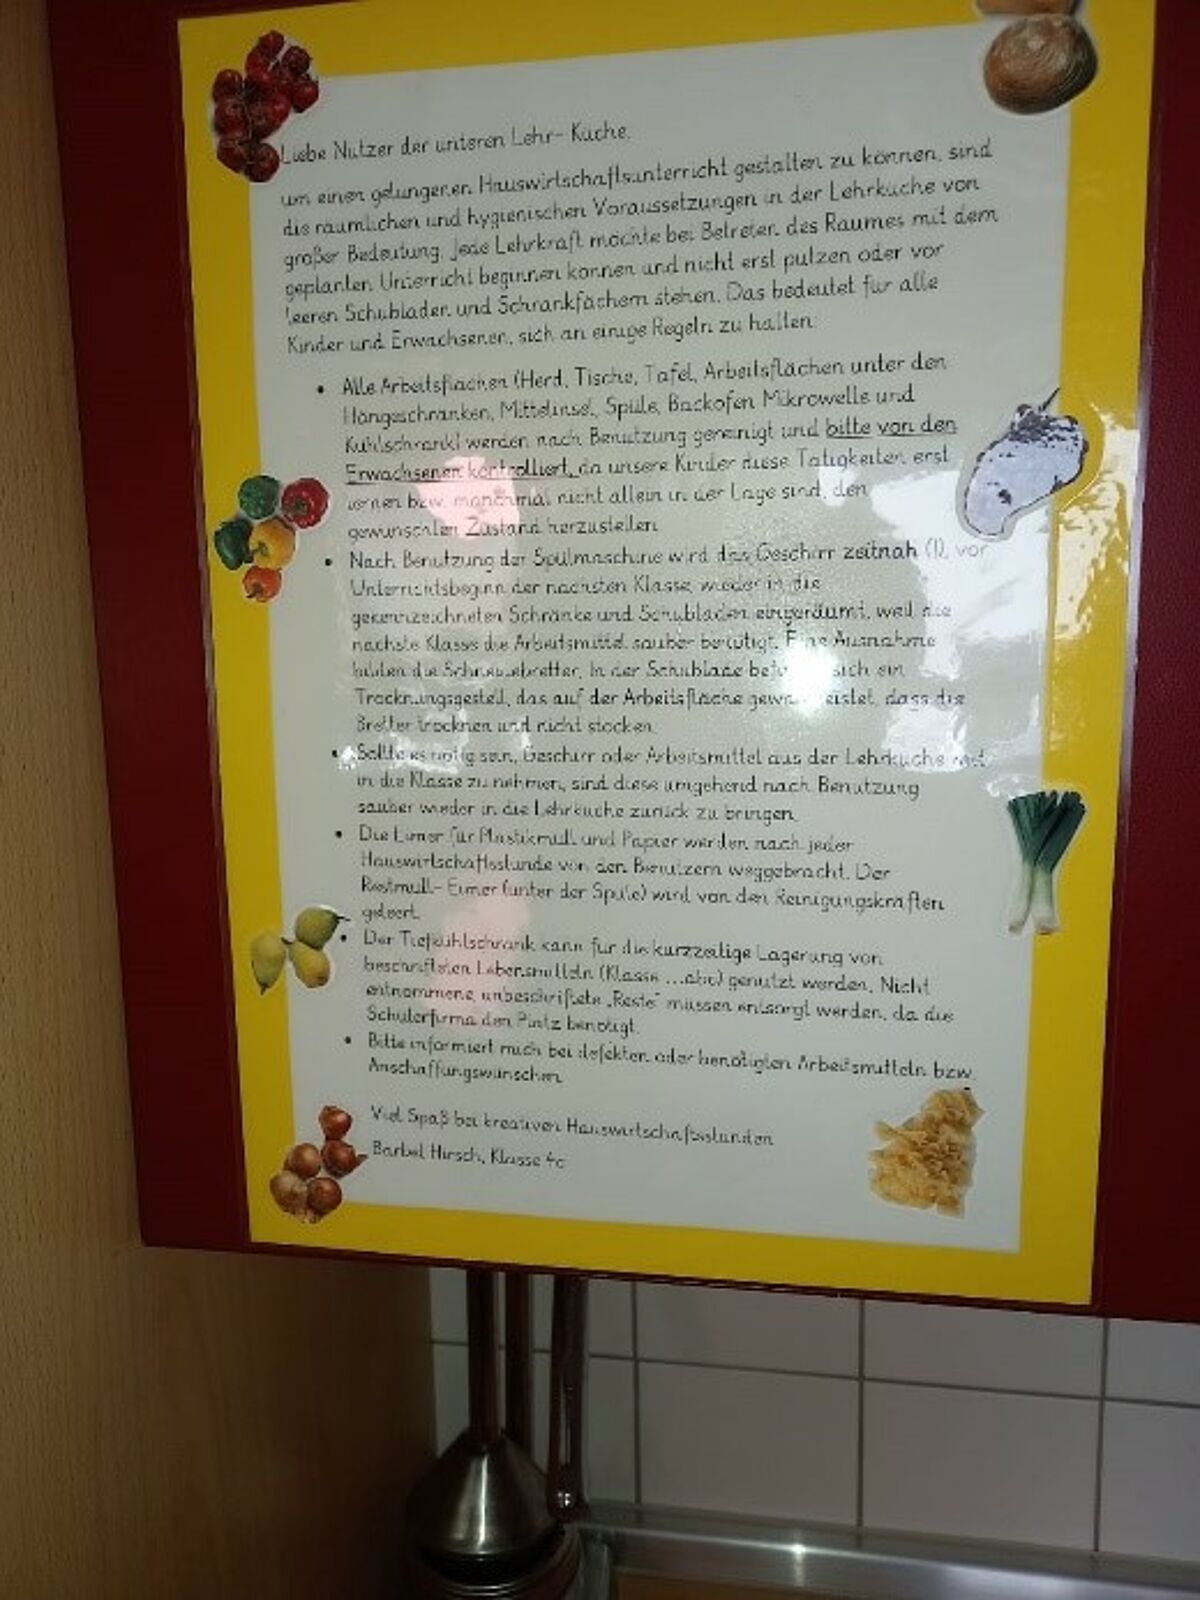 Liebe Nutzer der unteren Lehr- Küche,
um einen gelungenen Hauswirtschaftsunterricht gestalten zu können, sind
die räumlichen und hygienischen Voraussetzungen in der Lehrküche von
großer Bedeutung. Jede Lehrkraft möchte bei Betreten des Raumes mit dem
geplanten Unterricht beginnen können und nicht erst putzen oder vor
leeren Schubladen und Schrankfächern stehen. Das bedeutet für alle
Kinder und Erwachsenen, sich an einige Regeln zu halten:
• Alle Arbeitsflächen (Herd, Tische, Tafel, Arbeitsflächen unter den
Hängeschränken, Mittelinsel, Spüle, Backofen Mikrowelle und
Kühlschrank) werden nach Benutzung gereinigt und bitte von den
Erwachsenen kontrolliert, da unsere Kinder diese Tätigkeiten erst
lernen bzw. manchmal nicht allein in der Lage sind, den
gewünschten Zustand herzustellen.
• Nach Benutzung der Spülmaschine wird das Geschirr zeitnah (!), vor
Unterrichtsbeginn der nächsten Klasse, wieder in die
gekennzeichneten Schränke und Schubladen eingeräumt, weil die
nächste Klasse die Arbeitsmittel sauber benötigt. Eine Ausnahme
bilden die Schneidebretter. In der Schublade befindet sich ein
Trocknungsgestell, das auf der Arbeitsfläche gewährleistet, dass die
Bretter trocknen und nicht stocken.
• Sollte es nötig sein, Geschirr oder Arbeitsmittel aus der Lehrküche mit
in die Klasse zu nehmen, sind diese umgehend nach Benutzung
sauber wieder in die Lehrküche zurück zu bringen.
• Die Eimer für Plastikmüll und Papier werden nach jeder
Hauswirtschaftsstunde von den Benutzern weggebracht. Der
Restmüll- Eimer (unter der Spüle) wird von den Reinigungskräften
geleert.
• Der Tiefkühlschrank kann für die kurzzeitige Lagerung von
beschrifteten Lebensmitteln (Klasse ...abc) genutzt werden. Nicht
entnommene, unbeschriftete „Reste" müssen entsorgt werden, da die
Schülerfirma den Platz benötigt.
• Bitte informiert mich bei defekten oder benötigten Arbeitsmitteln bzw.
Anschaffungswünschen.
Viel Spaß bei kreativen Hauswirtschaftsstunden
Bärbel Hirsch, Klasse 4c